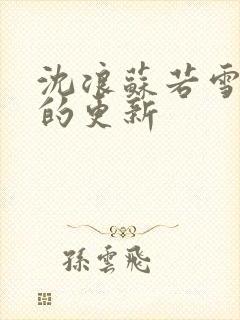 沈浪蘇若雪
的更新
孫雲飛